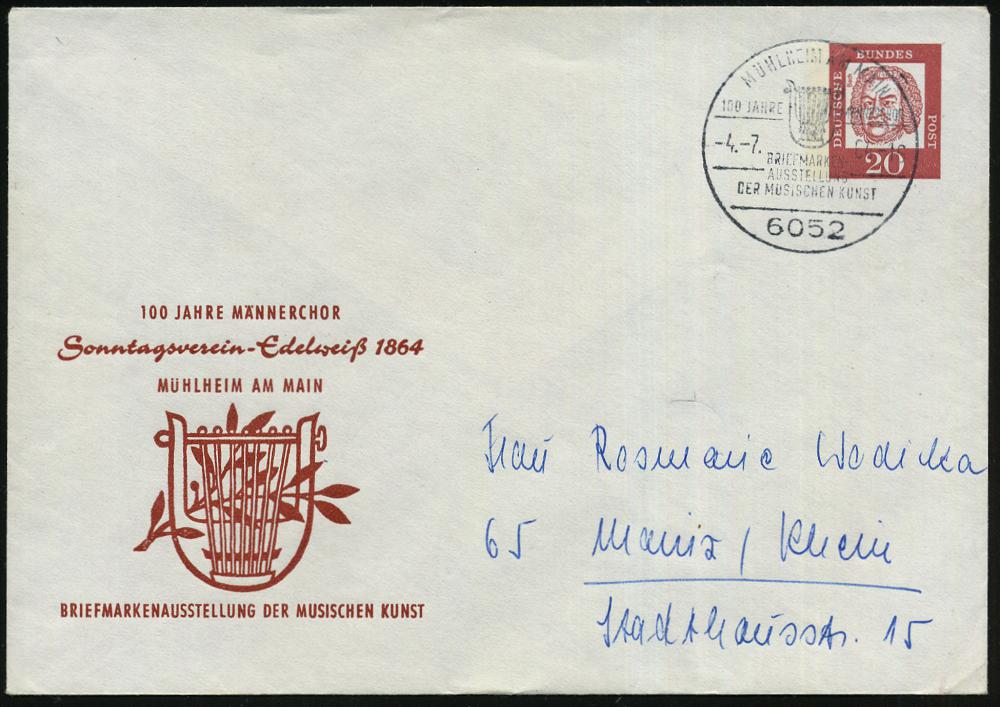 BUNDES
DEUTSCHE
POST
Bach
20
MÜHLHEIM AM MAIN
100 JAHRE
-4.-7.
BRIEFMARKEN-
AUSSTELLUNG
DER MUSISCHEN KUNST
6052
100 JAHRE MÄNNERCHOR
Sonntagsverein-Edelweiß 1864
MÜHLHEIM AM MAIN
BRIEFMARKENAUSSTELLUNG DER MUSISCHEN KUNST
Frau Rosmarie Wodicka
65 Mainz / Rhein
Stadthausstr. 15